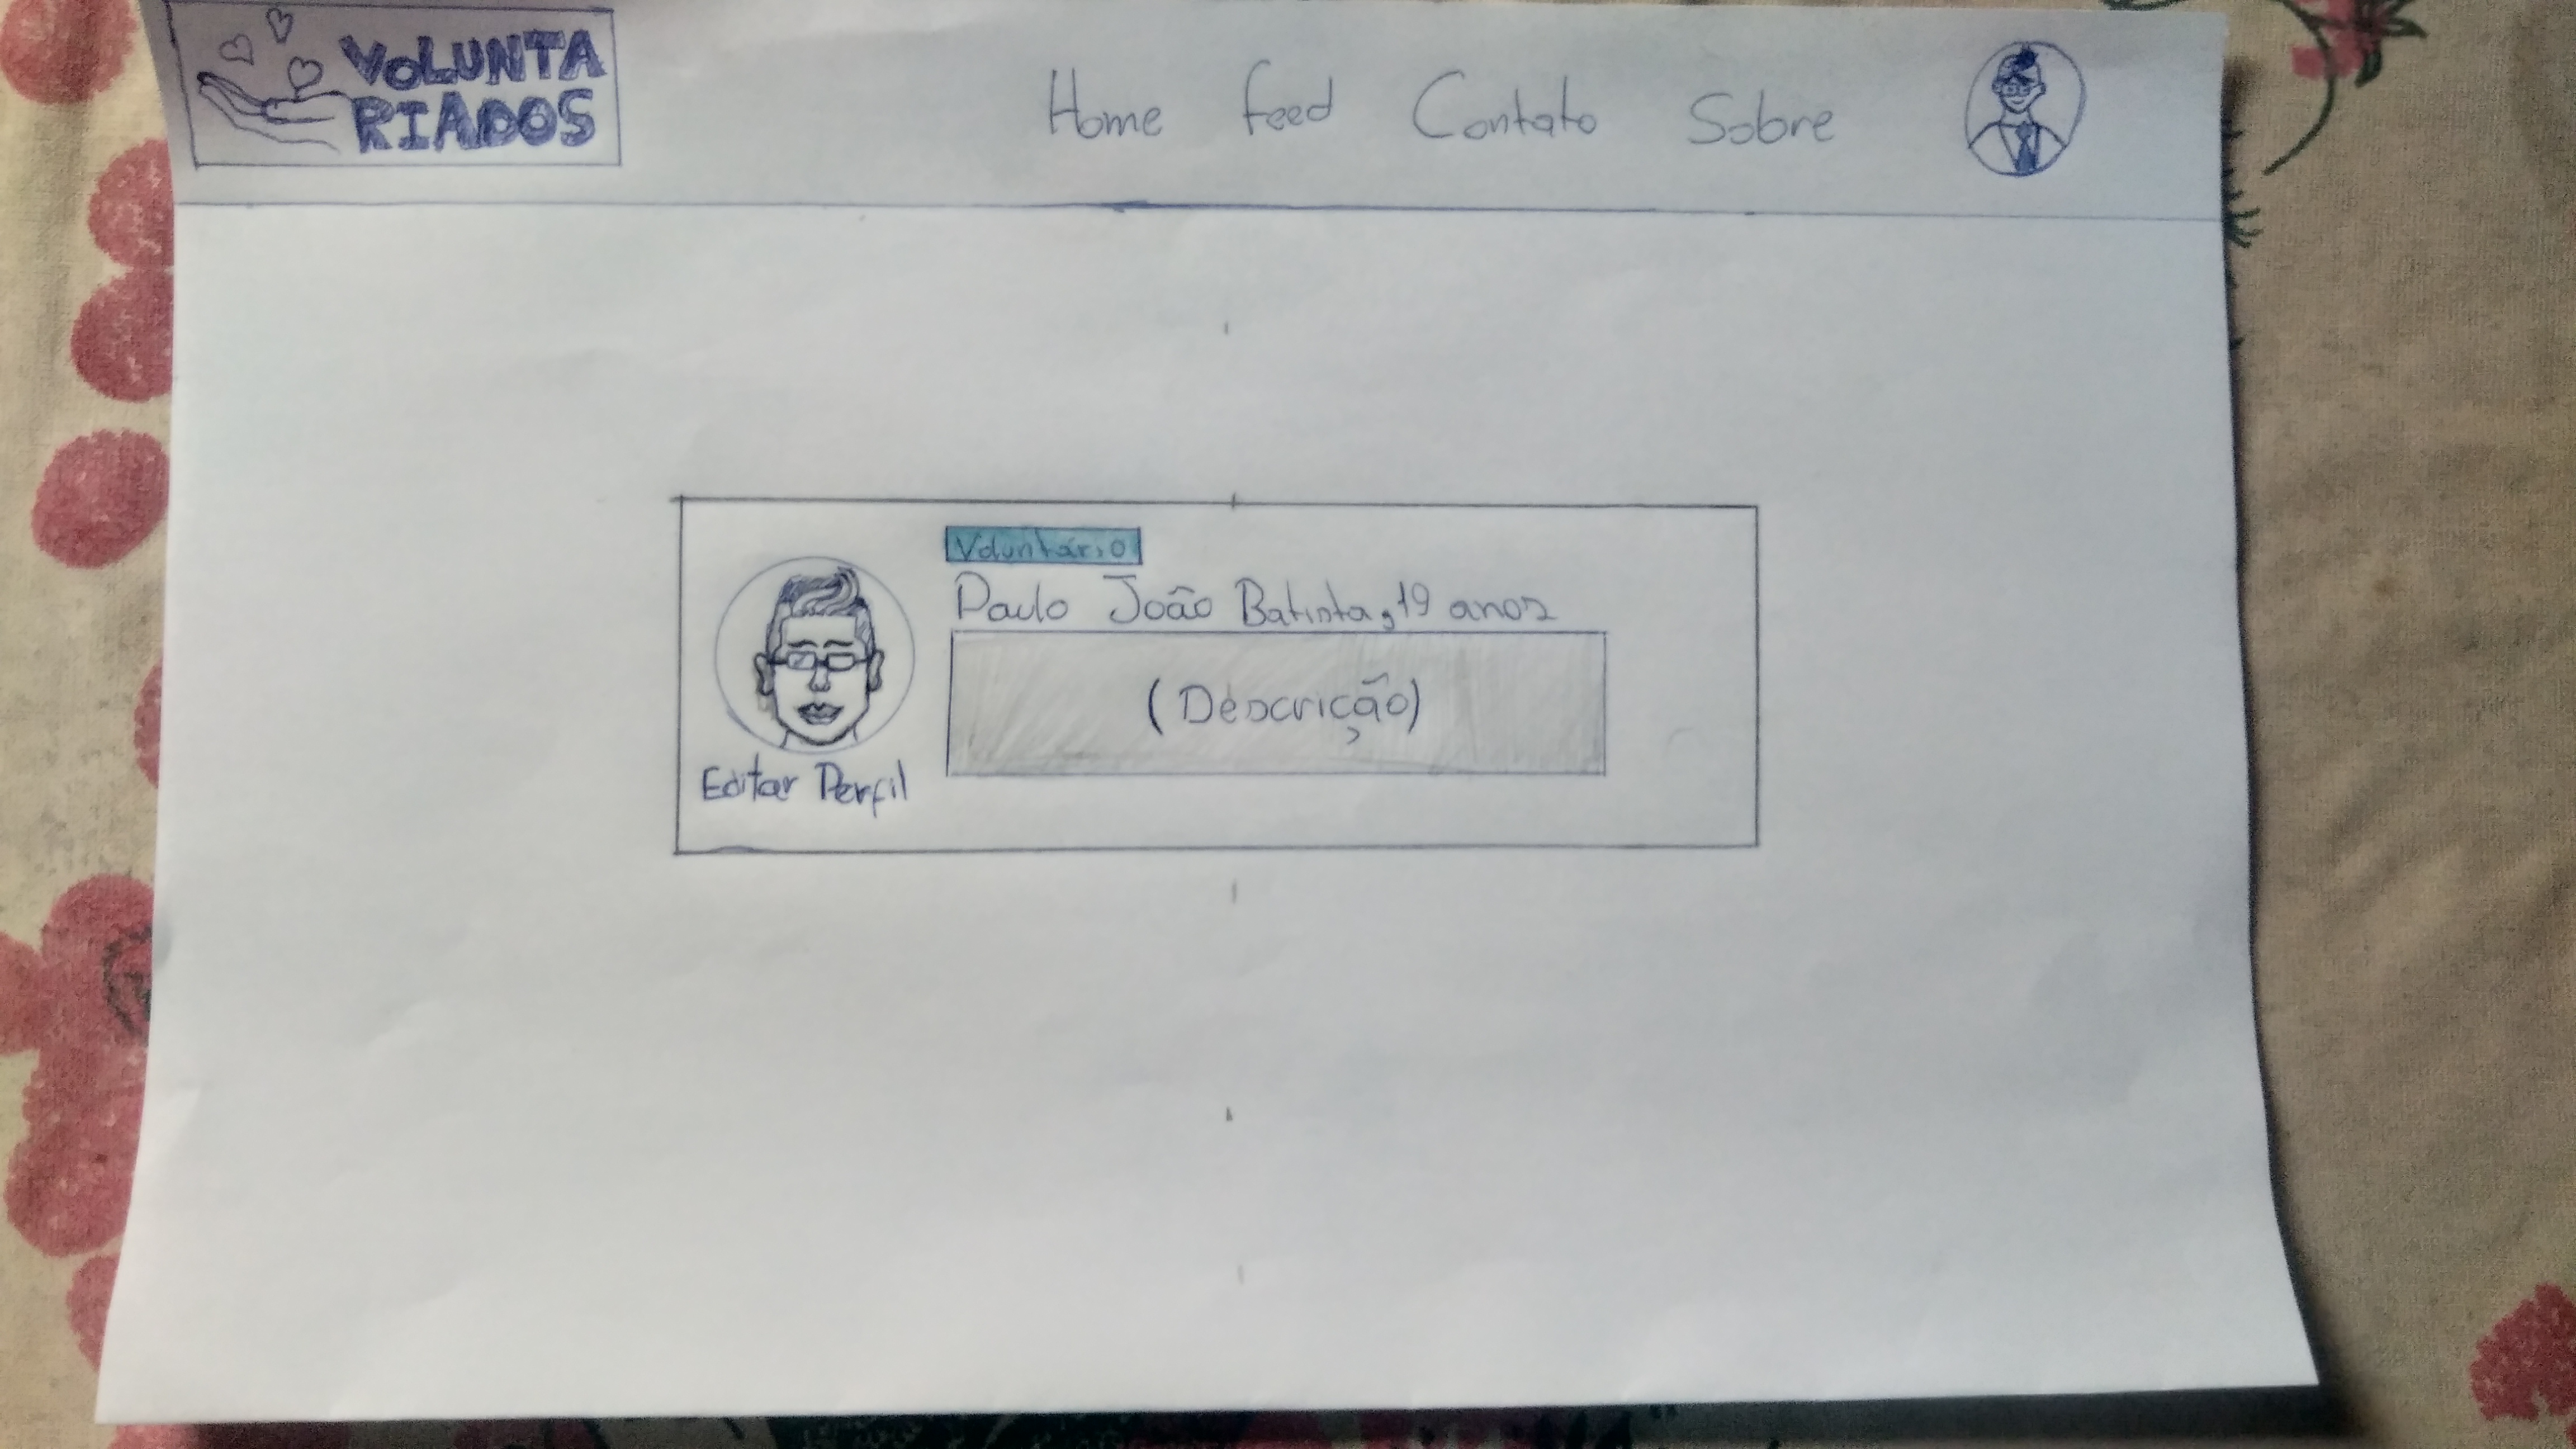 VOLUNTA
RIADOS
Home feed Contato Sobre
Voluntário
Paulo João Batista, 19 anos
(Descrição)
Editar Perfil